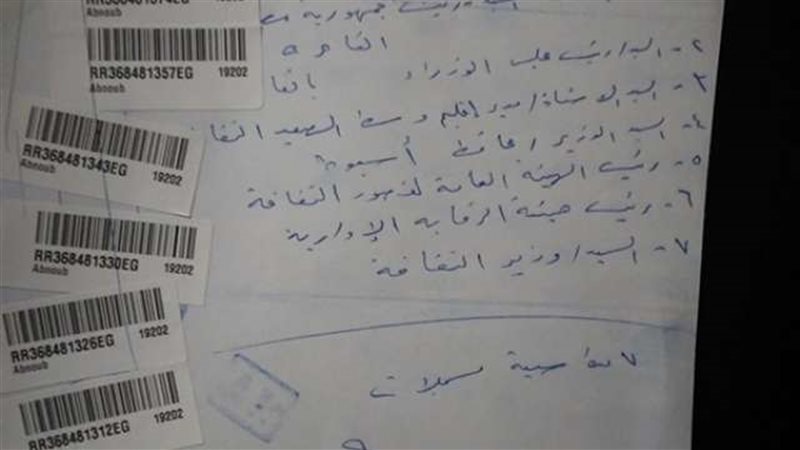 السيد/ رئيس جمهورية
القاهرة
٢- السيد/ رئيس مجلس الوزراء
٣- السيد الأستاذ/ مدير اقليم وسط الصعيد الثقا
٤- السيد الوزير/ محافظ أسيوط
٥- رئيس الهيئة العامة لقصور الثقافة
٦- رئيس هيئة الرقابه الإدارية
٧- السيد/ وزير الثقافة
مسجلات
19202
Abnoub
RR368481357EG 19202
Abnoub
RR368481343EG 19202
Abnoub
RR368481330EG 19202
Abnoub
RR368481326EG 19202
Abnoub
RR368481312EG 19202